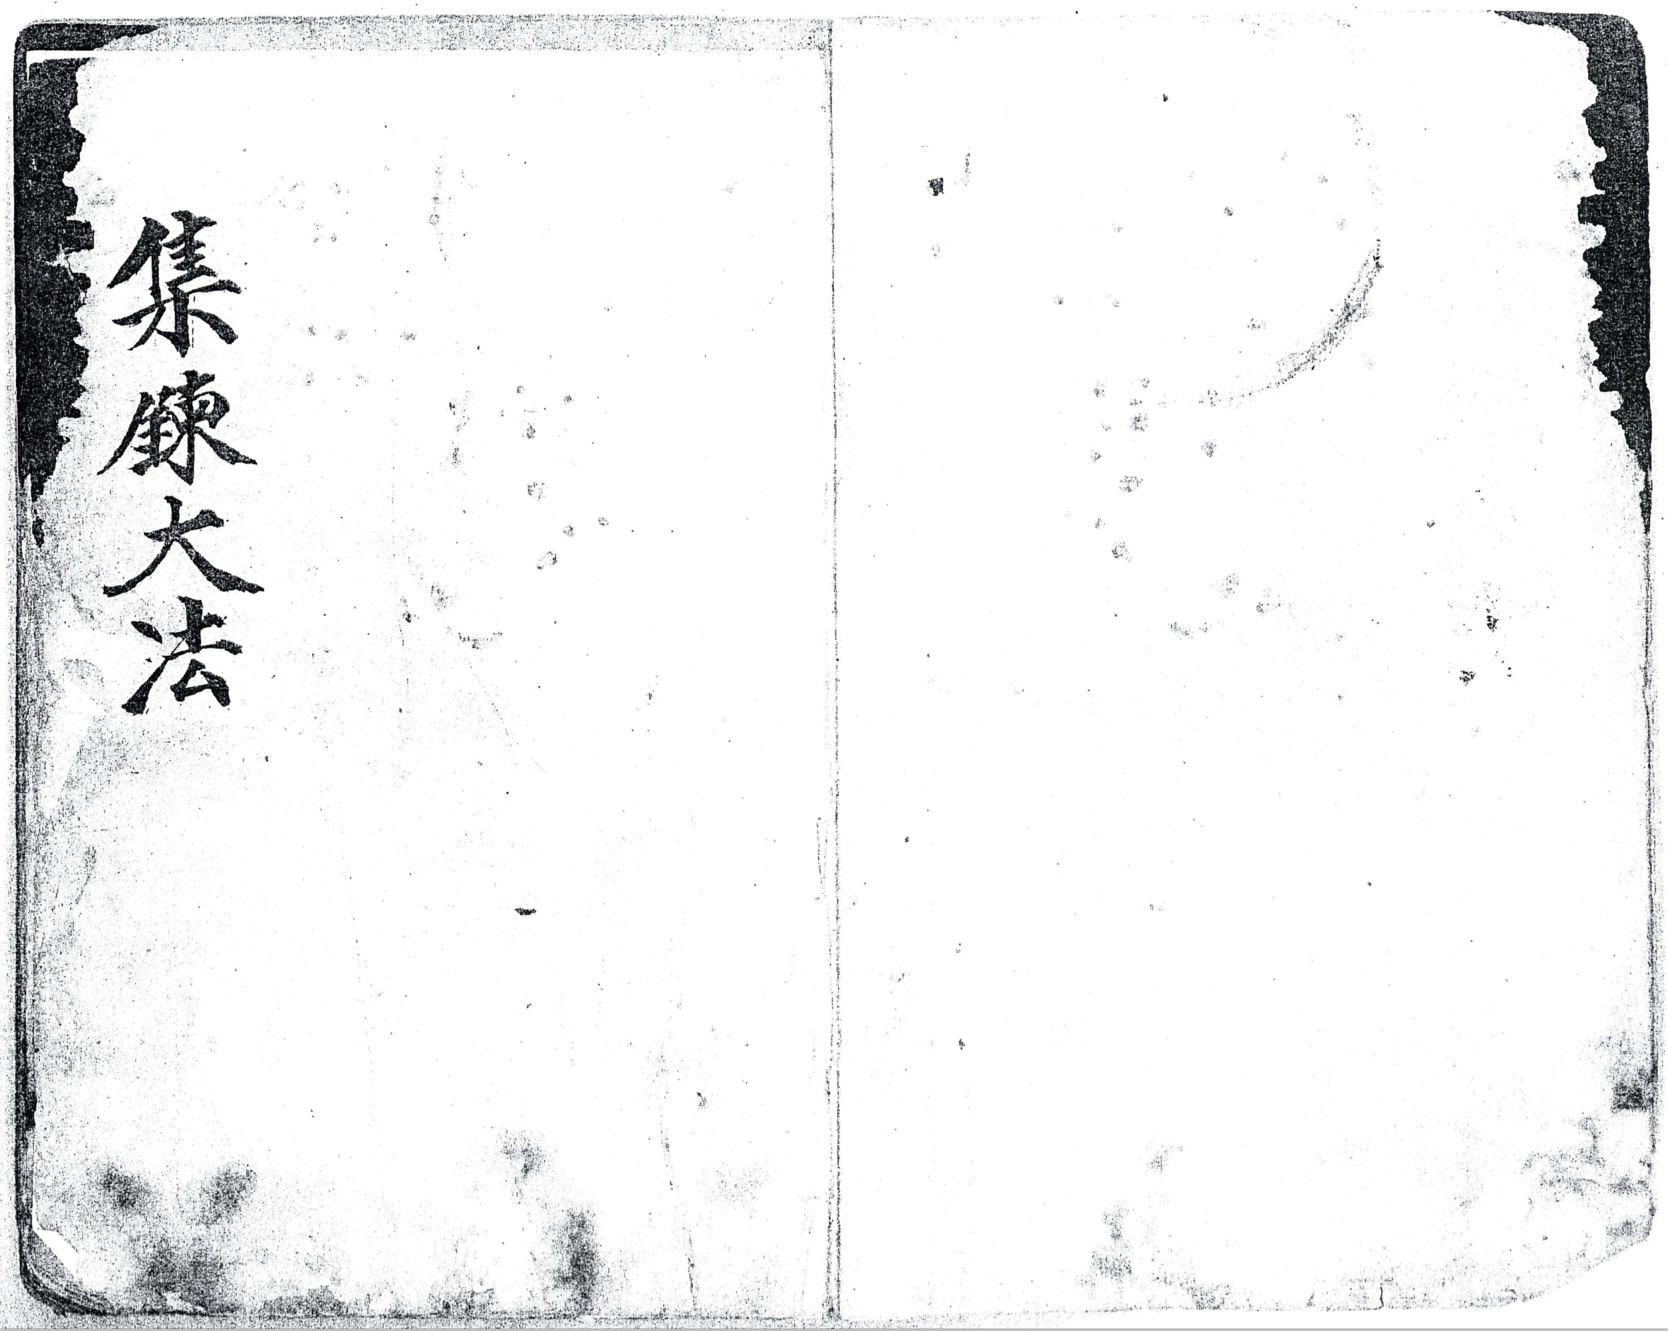 集鍊大法